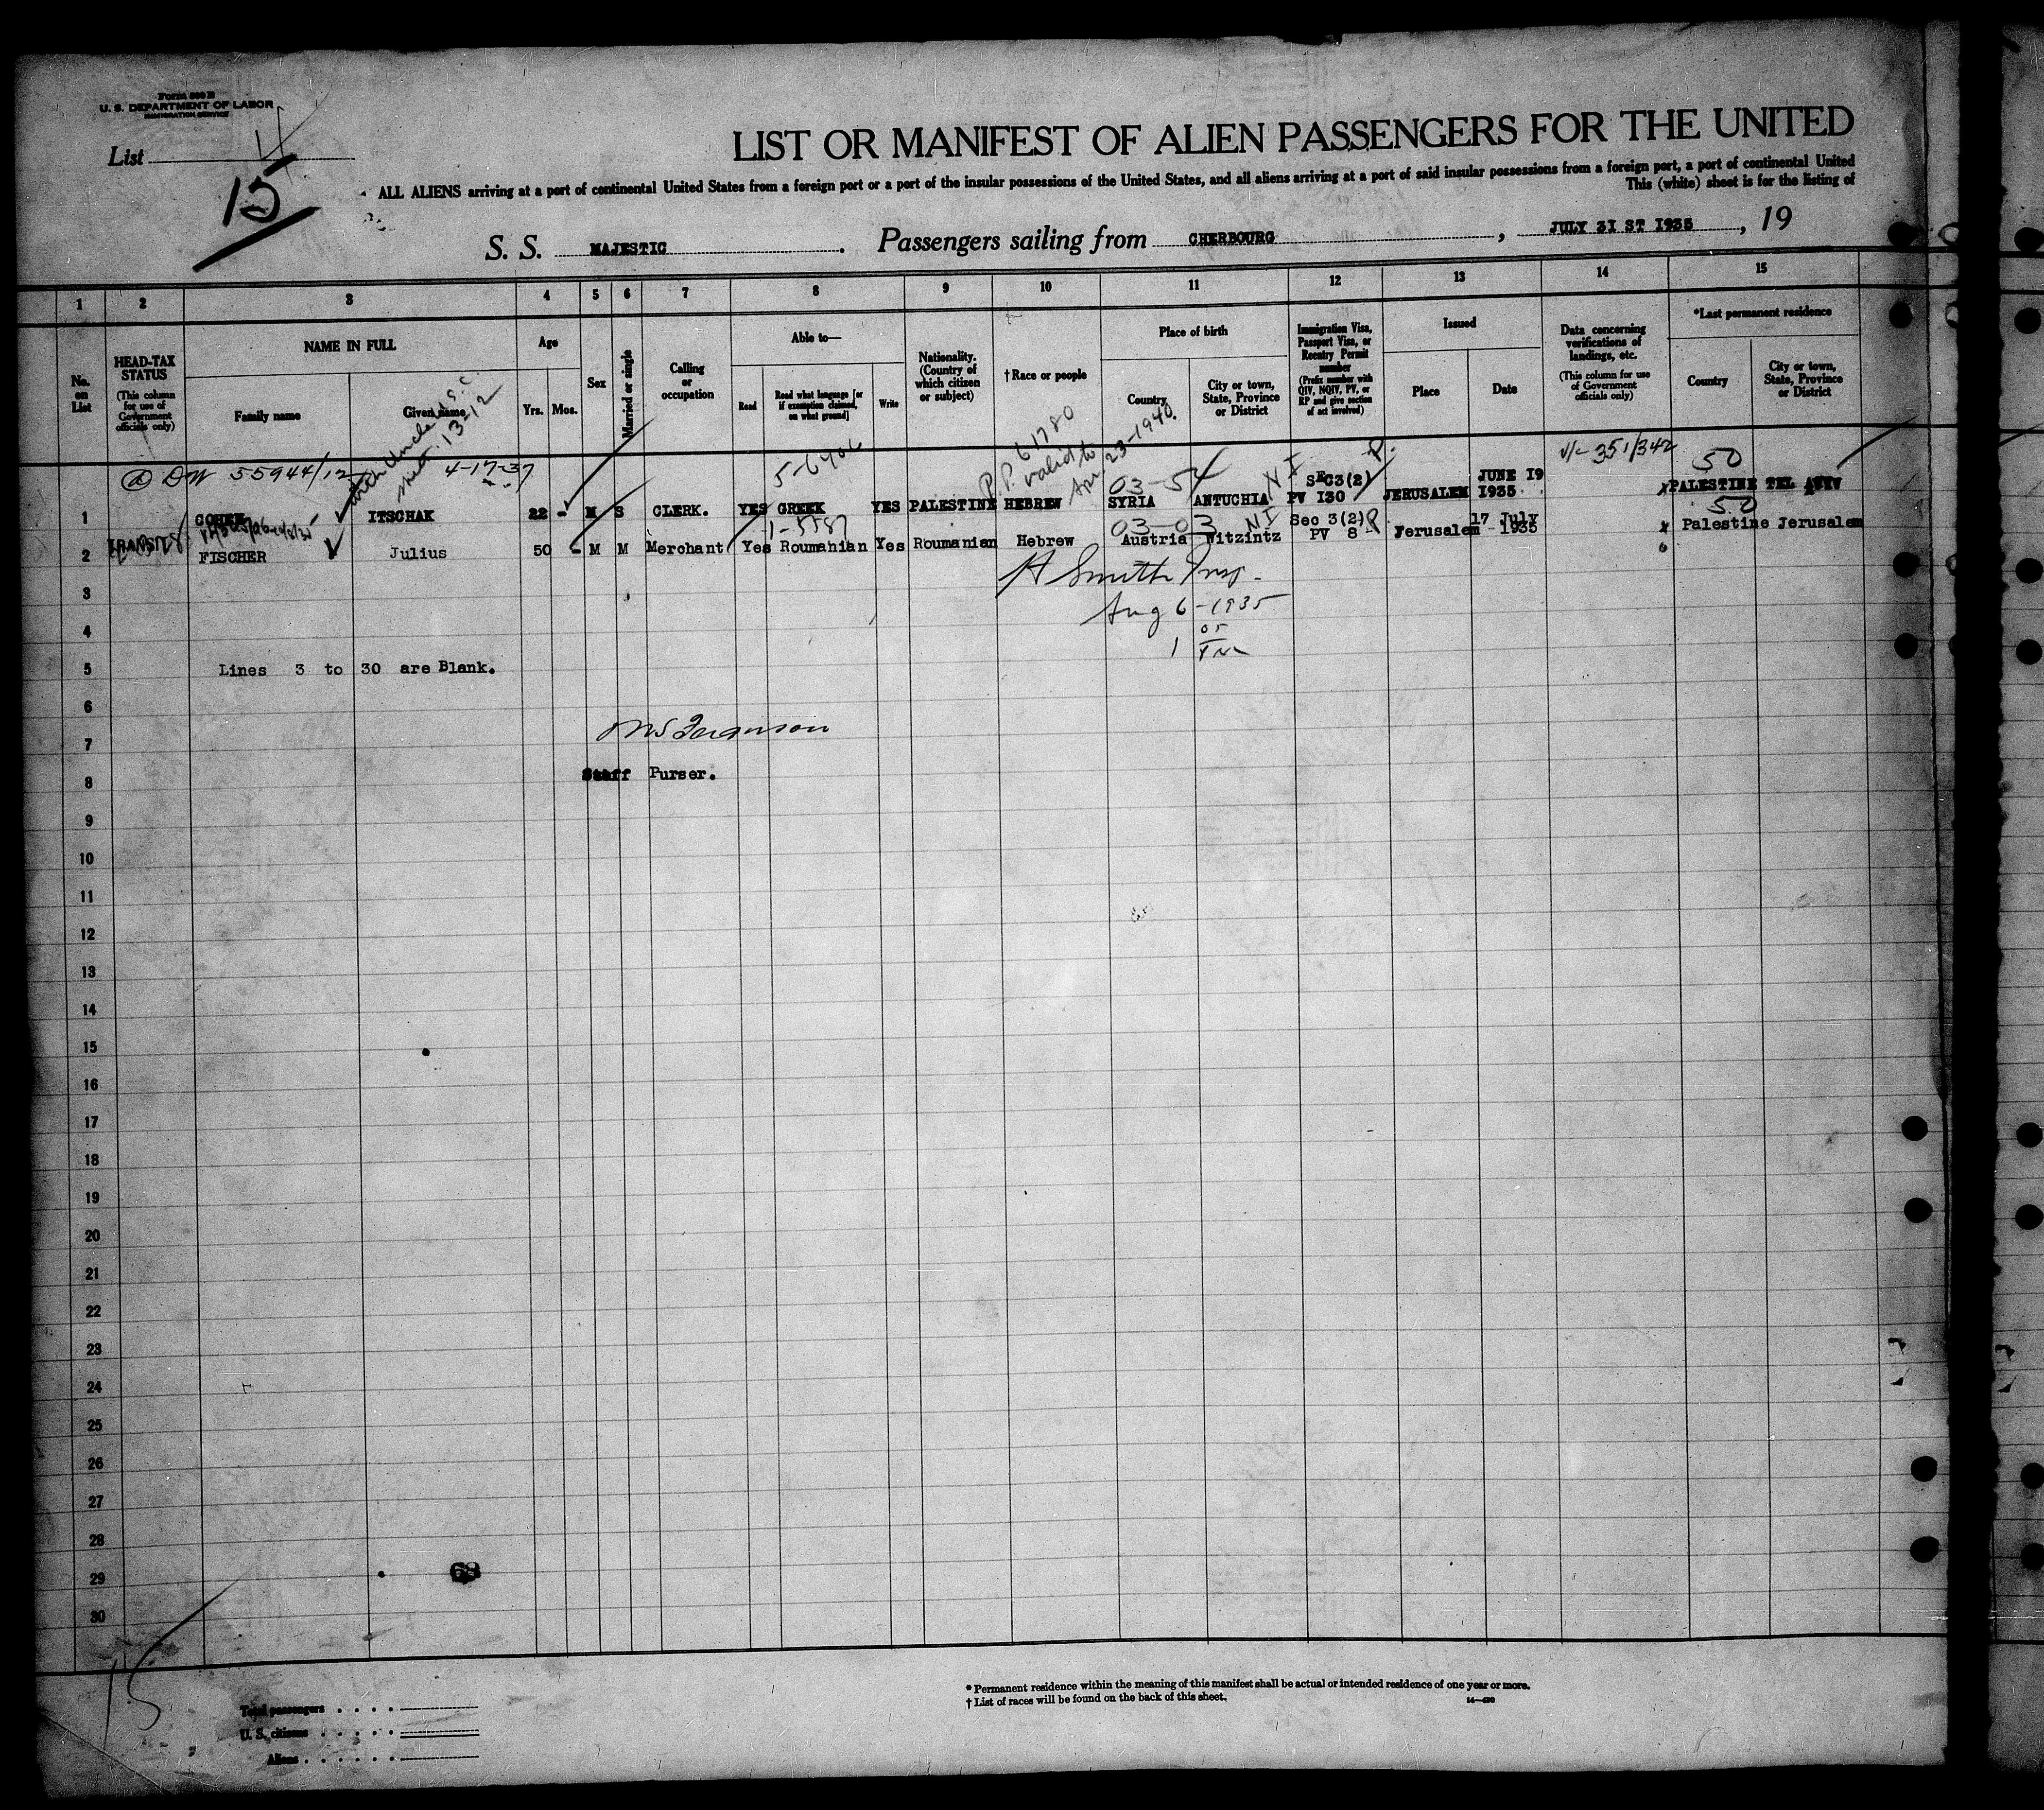 Form 500 B
U. S. DEPARTMENT OF LABOR
IMMIGRATION SERVICE
List
15
LIST OR MANIFEST OF ALIEN PASSENGERS FOR THE UNITED
ALL ALIENS arriving at a port of continental United States from a foreign port or a port of the insular possessions of the United States, and all aliens arriving at a port of said insular possessions from a foreign port, a port of continental United
This (white) sheet is for the listing of
S. S. MAJESTIC. Passengers sailing from CHERBOURG, JULY 31 ST 1935, 19
1 2 3 4 5 6 7 8 9 10 11 12 13 14 15
No. on List
HEAD-TAX STATUS (This column for use of Government officials only)
NAME IN FULL Family name Given name
Age Yrs. Mos.
Sex
Married or single
Calling or occupation
Able to— Read Read what language [or if exemption claimed, on what ground] Write
Nationality. (Country of which citizen or subject)
† Race or people
Place of birth Country City or town, State, Province or District
Immigration Visa, Passport Visa, or Reentry Permit number (Prefix number with QIV, NQIV, PV, or RP and give section of act involved)
Issued Place Date
Data concerning verifications of landings, etc. (This column for use of Government officials only)
*Last permanent residence Country City or town, State, Province or District
55944/12 4-17-37 5-6406 P.P. 61780 valid to Apr. 23-1940. 03-54 NI P. V/L 351/342 50
1 COHEN ITSCHAK 22 - M S CLERK. YES GREEK YES PALESTINE HEBREW SYRIA ANTUCHIA SEC3(2) PV 130 JERUSALEM JUNE 19 1935. x PALESTINE TEL AVIV
1-5587 03-03 NI P 50
2 TRANSIT FISCHER Julius 50 - M M Merchant Yes Roumanian Yes Roumanian Hebrew Austria Witzintz Sec 3(2) PV 8 Jerusalem 17 July 1935 x Palestine Jerusalem
3
H Smith Insp.
Aug 6-1935
4
5 Lines 3 to 30 are Blank.
6
7
Ferguson
8 Staff Purser.
9
10
11
12
13
14
15
16
17
18
19
20
21
22
23
24
25
26
27
28
29 68
30
15
Total passengers
U. S. citizens
Aliens
* Permanent residence within the meaning of this manifest shall be actual or intended residence of one year or more.
† List of races will be found on the back of this sheet.
14—430